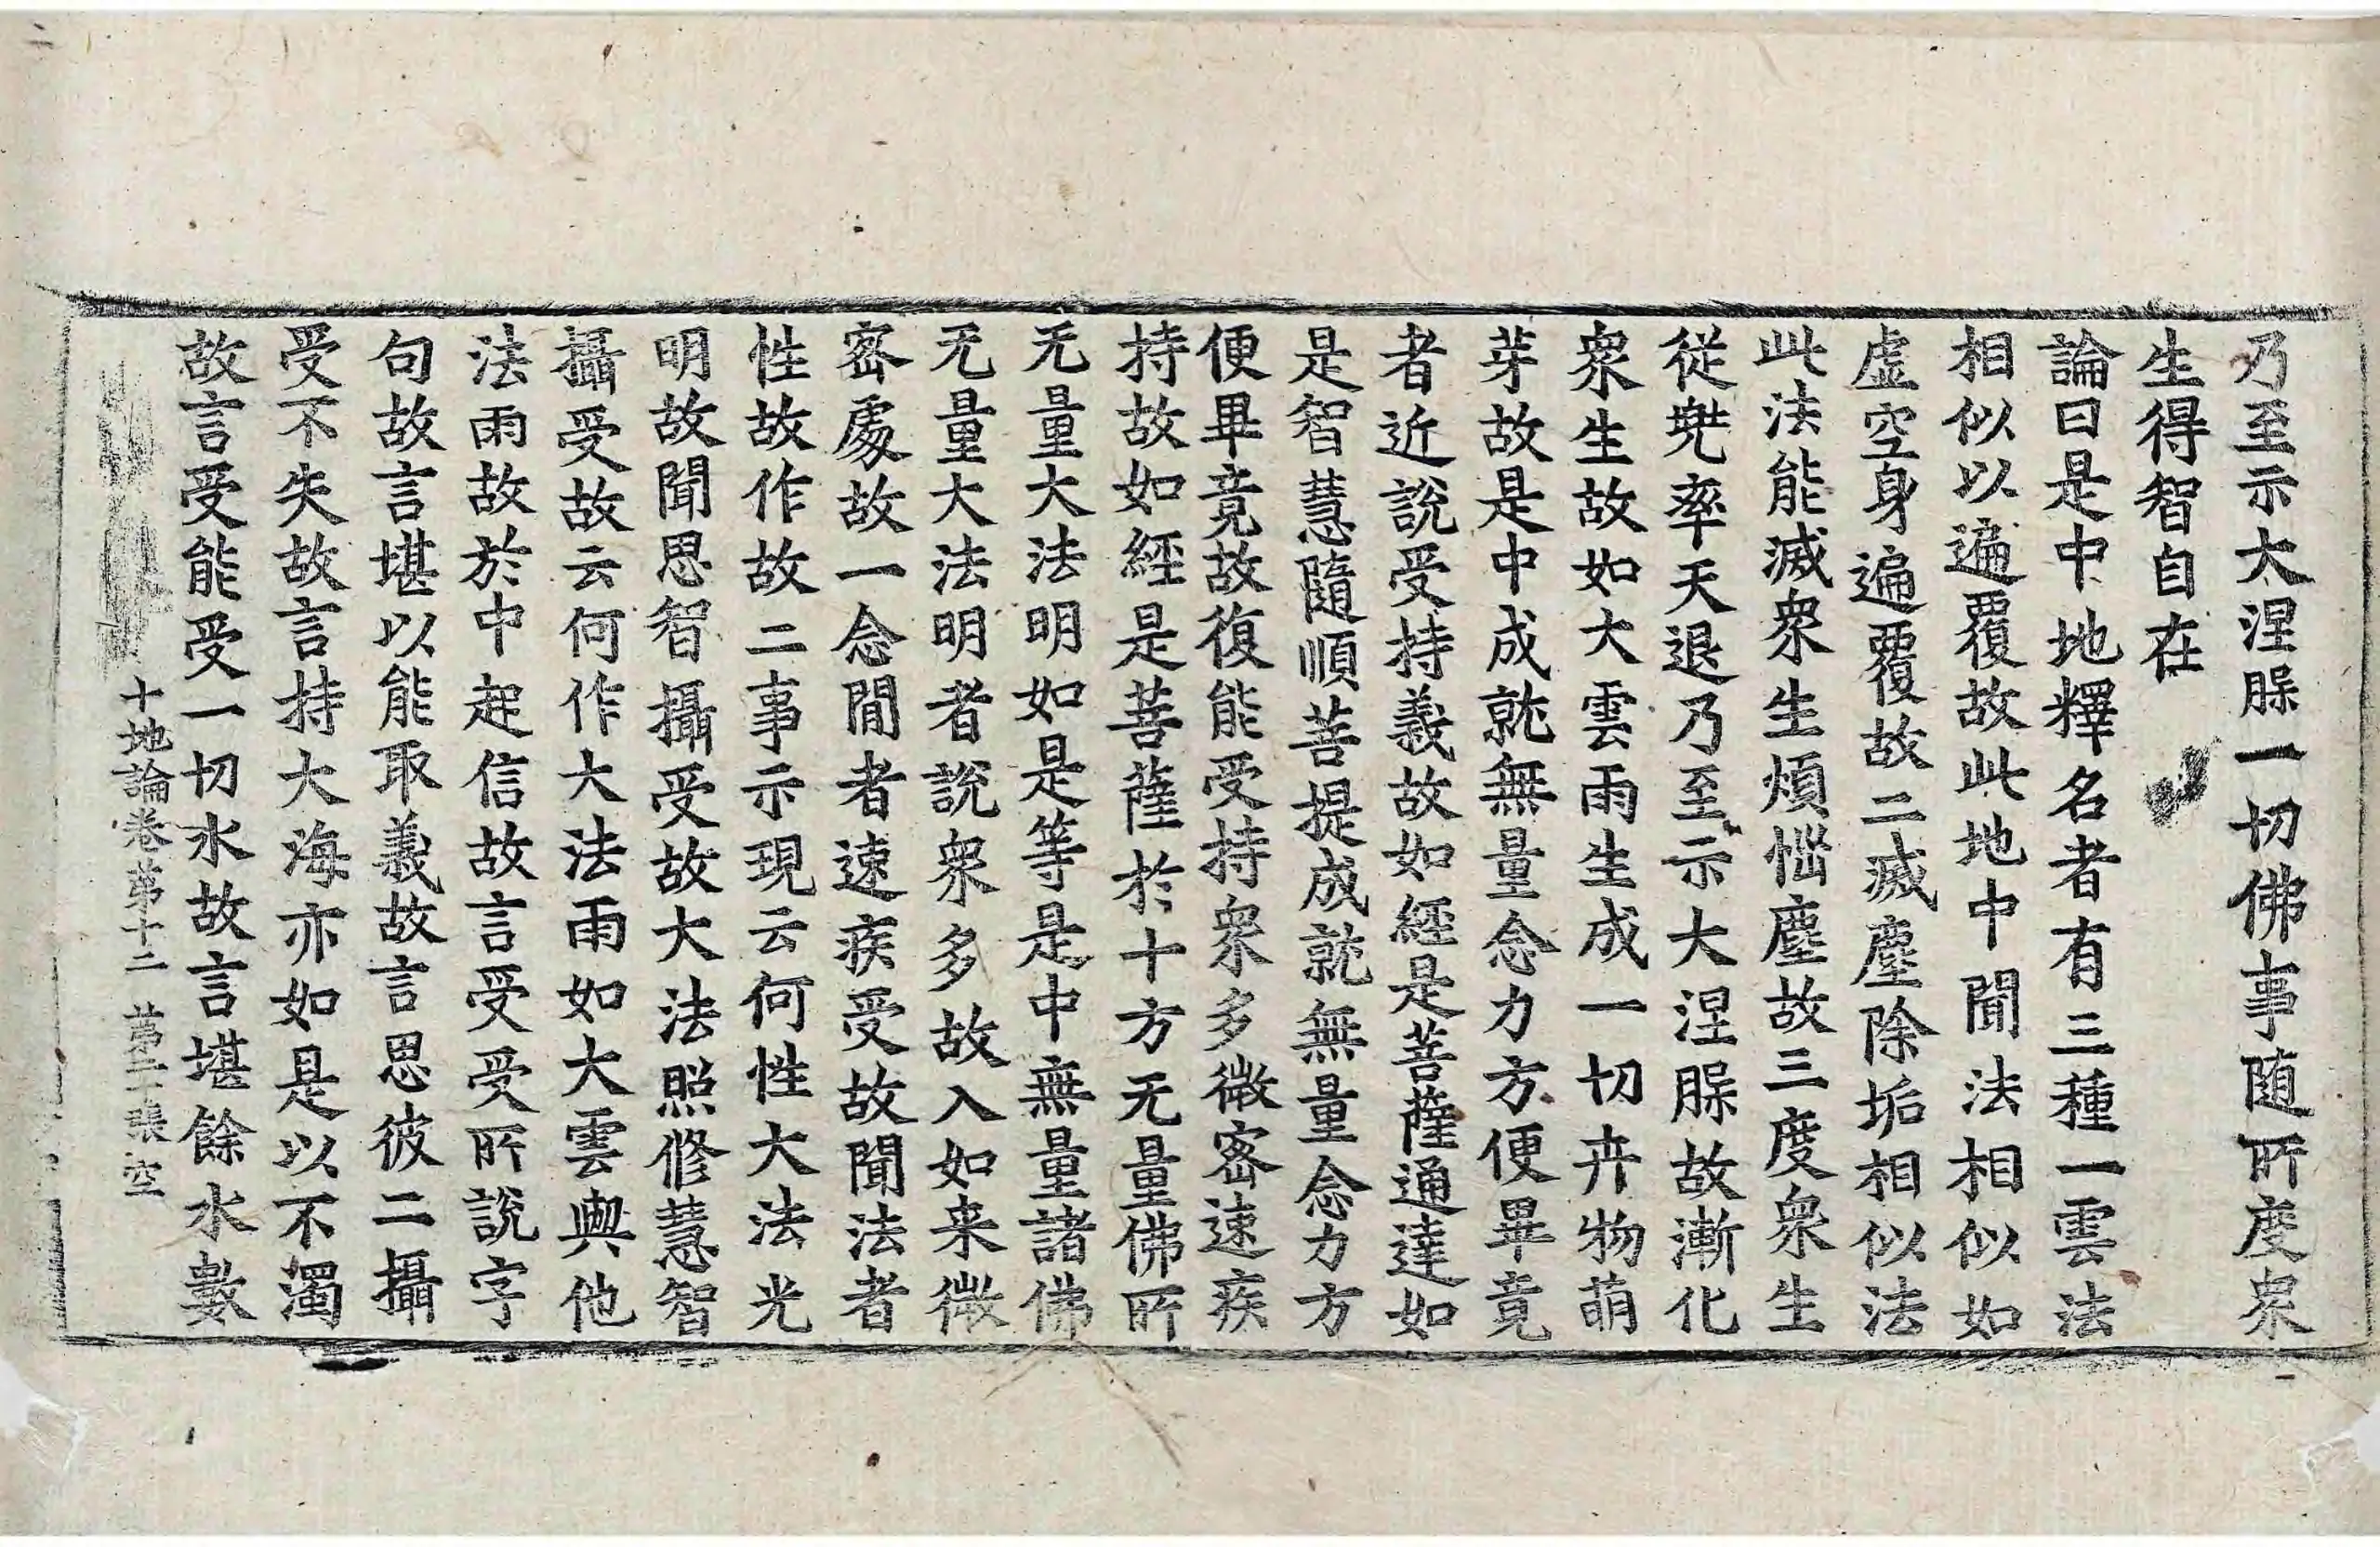 乃至示大涅槃一切佛事随所度衆
生得智自在
論曰是中地釋名者有三種一雲法
相似以遍覆故此地中聞法相似如
虛空身遍覆故二滅塵除垢相似法
此法能滅衆生煩惱塵故三度衆生
從兜率天退乃至示大涅槃故漸化
衆生故如大雲雨生成一切卉物萌
芽故是中成就無量念力方便畢竟
者近說受持義故如經是菩薩通達如
是智慧隨順菩提成就無量念力方
便畢竟故復能受持衆多微密速疾
持故如經是菩薩於十方无量佛所
无量大法明如是等是中無量諸佛
无量大法明者說衆多故入如来微
密處故一念閒者速疾受故聞法者
性故作故二事示現云何性大法光
明故聞思智攝受故大法照修慧智
攝受故云何作大法雨如大雲與他
法雨故於中起信故言受受所說字
句故言堪以能取義故言思彼二攝
受不失故言持大海亦如是以不濁
故言受能受一切水故言堪餘水數
十地論卷第十二 第二張 空